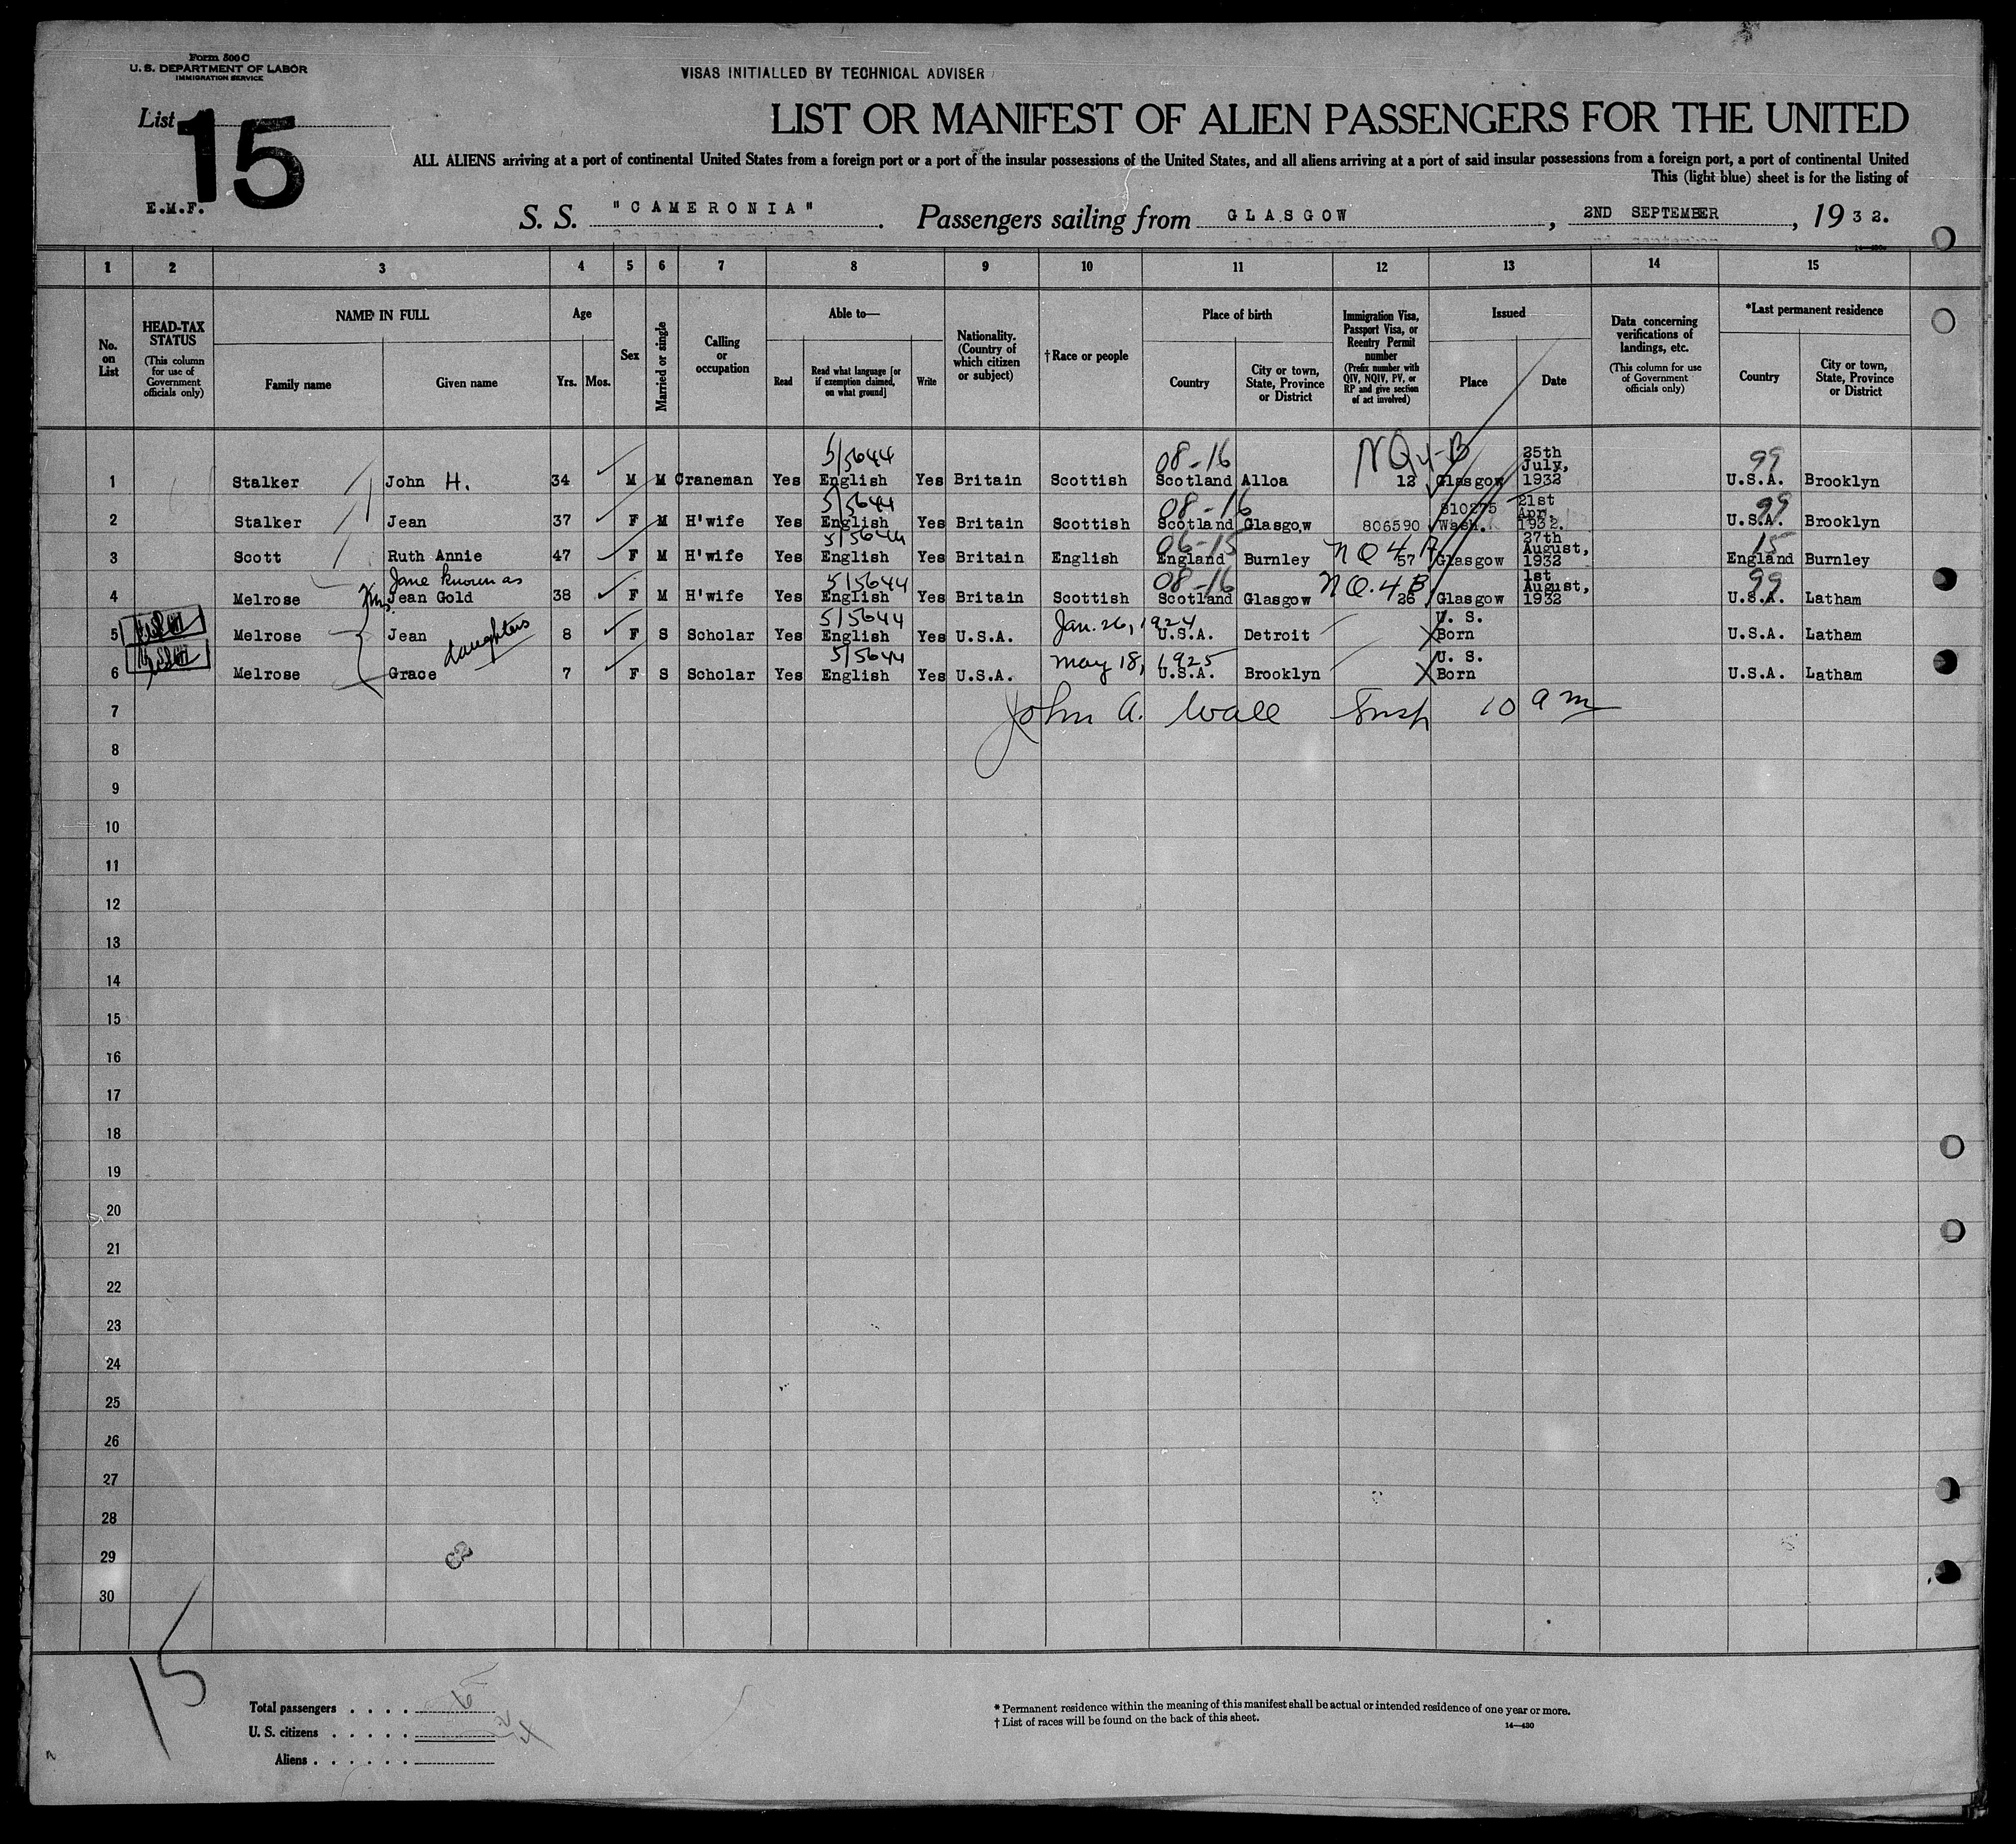 Form 500 C
U. S. DEPARTMENT OF LABOR
IMMIGRATION SERVICE
VISAS INITIALLED BY TECHNICAL ADVISER
List 15
LIST OR MANIFEST OF ALIEN PASSENGERS FOR THE UNITED
ALL ALIENS arriving at a port of continental United States from a foreign port or a port of the insular possessions of the United States, and all aliens arriving at a port of said insular possessions from a foreign port, a port of continental United
This (light blue) sheet is for the listing of
E.M.F.
S. S. "CAMERONIA". Passengers sailing from GLASGOW, 2ND SEPTEMBER, 1932.
1 2 3 4 5 6 7 8 9 10 11 12 13 14 15
No. on List
HEAD-TAX STATUS
(This column for use of Government officials only)
NAME IN FULL
Family name
Given name
Age
Yrs. Mos.
Sex
Married or single
Calling or occupation
Able to—
Read
Read what language [or if exemption claimed, on what ground]
Write
Nationality. (Country of which citizen or subject)
†Race or people
Place of birth
Country
City or town, State, Province or District
Immigration Visa, Passport Visa, or Reentry Permit number
(Prefix number with QIV, NQIV, PV, or RP and give section of act involved)
Issued
Place
Date
Data concerning verifications of landings, etc.
(This column for use of Government officials only)
*Last permanent residence
Country
City or town, State, Province or District
5/5644 08-16 NQ4-B 25th July, 99
1 Stalker John H. 34 M M Craneman Yes English Yes Britain Scottish Scotland Alloa 12 Glasgow 1932 U.S.A. Brooklyn
5/5644 08-16 810275 21st Apr. 99
2 Stalker Jean 37 F M H'wife Yes English Yes Britain Scottish Scotland Glasgow 806590 Wash. 1932. U.S.A. Brooklyn
5/5644 06-15 NQ4A 27th August, 15
3 Scott Ruth Annie 47 F M H'wife Yes English Yes Britain English England Burnley 57 Glasgow 1932 England Burnley
Jane known as 5/5644 08-16 NQ.4B 1st August, 99
4 Melrose Mrs. Jean Gold 38 F M H'wife Yes English Yes Britain Scottish Scotland Glasgow 26 Glasgow 1932 U.S.A. Latham
5/5644 Jan. 26, 1924 U. S.
5 Melrose Jean daughters 8 F S Scholar Yes English Yes U.S.A. U.S.A. Detroit Born U.S.A. Latham
5/5644 May 18, 1925 U. S.
6 Melrose Grace 7 F S Scholar Yes English Yes U.S.A. U.S.A. Brooklyn Born U.S.A. Latham
7 John A. Wall Insp 10 am
8
9
10
11
12
13
14
15
16
17
18
19
20
21
22
23
24
25
26
27
28
29
30
15
Total passengers . . . . 6
U. S. citizens . . . . .
Aliens . . . . . .
* Permanent residence within the meaning of this manifest shall be actual or intended residence of one year or more.
† List of races will be found on the back of this sheet.
14—430